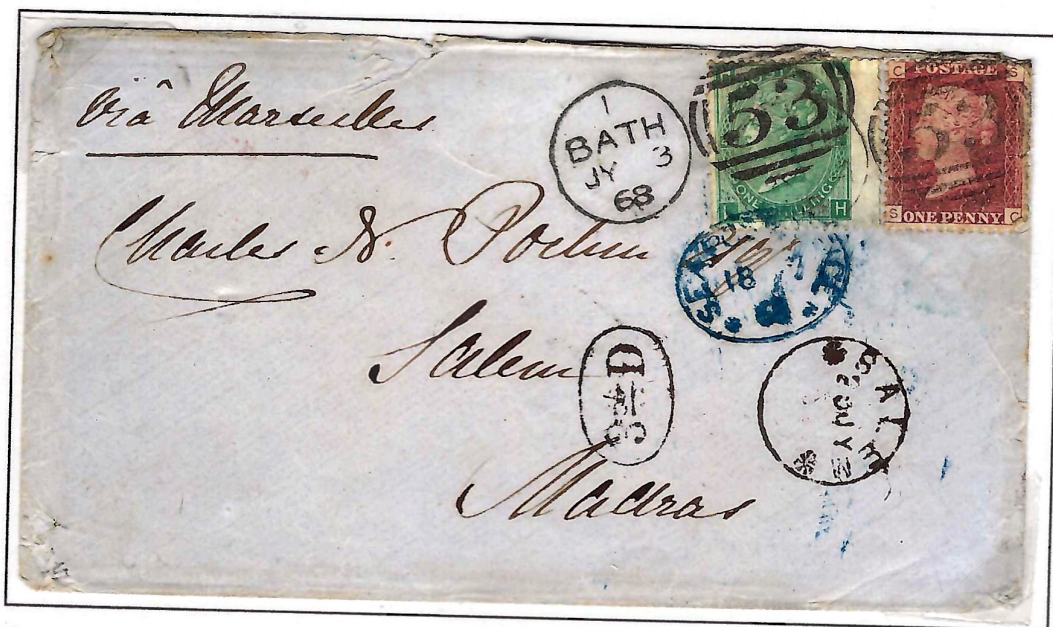 viâ Marseilles
1
BATH
JY 3
68
53
ONE SHILLING
H
C POSTAGE S
S ONE PENNY C
Charles N. Pochin Esqr
SEA POST OFFICE
18
Salem
D
SALEM
Madras